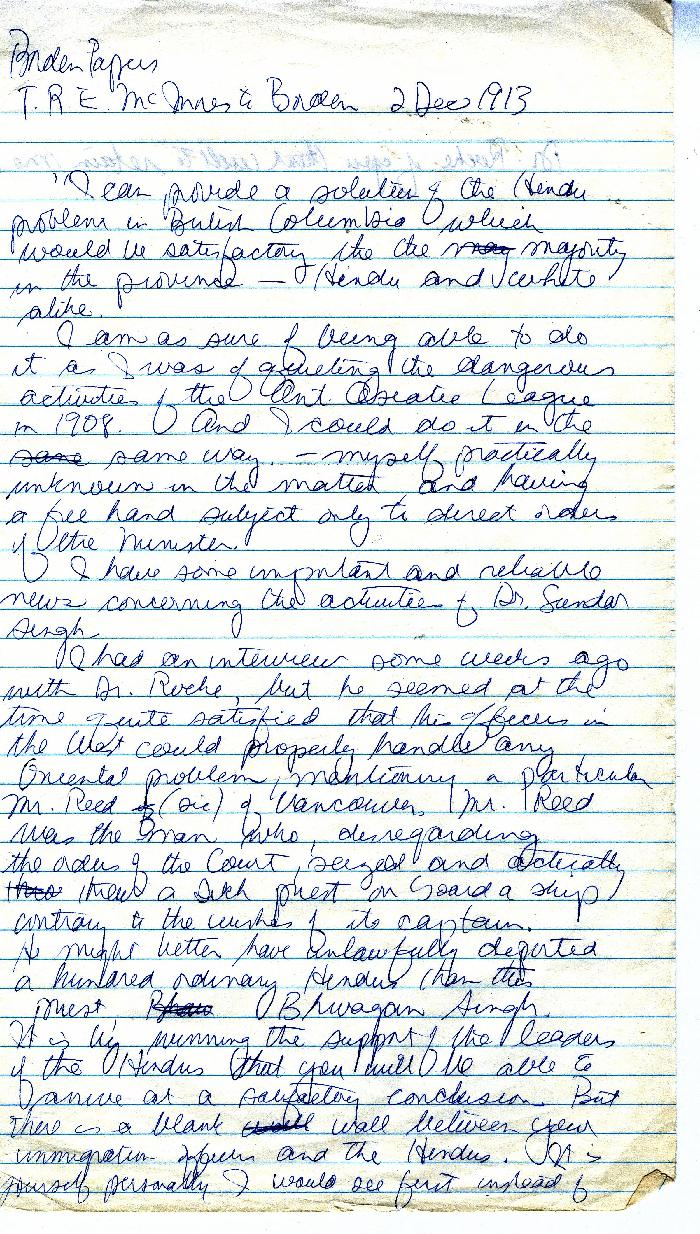 Borden Papers
T. R. E. McInnes to Borden 2 Dec 1913
"I can provide a solution of the Hindu
problem in British Columbia which
would be satisfactory the the may majority
in the province — Hindu and white
alike.
I am as sure of being able to do
it as I was of quieting the dangerous
activities of the Anti Asiatic League
in 1908. And I could do it in the
same same way. – myself practically
unknown in the matter and having
a free hand subject only to direct orders
of the Minister.
I have some important and reliable
news concerning the activities of Dr. Sundar
Singh.
I had an interview some weeks ago
with Dr. Roche, but he seemed at the
time quite satisfied that his officers in
the West could properly handle any
Oriental problem, mentioning a particular
Mr. Reed (sic) of Vancouver. Mr. Reed
was the man who, disregarding
the orders of the Court, seized and actually
threw a Sikh priest on board a ship
contrary to the wishes of its captain.
He might better have unlawfully deported
a hundred ordinary Hindus than this
priest Bhwagan Singh.
It is by winning the support of the leaders
of the Hindus that you will be able to
arrive at a satisfactory conclusion. But
there is a blank wall between your
immigration officers and the Hindus. It is
yourself personally I would see first instead of